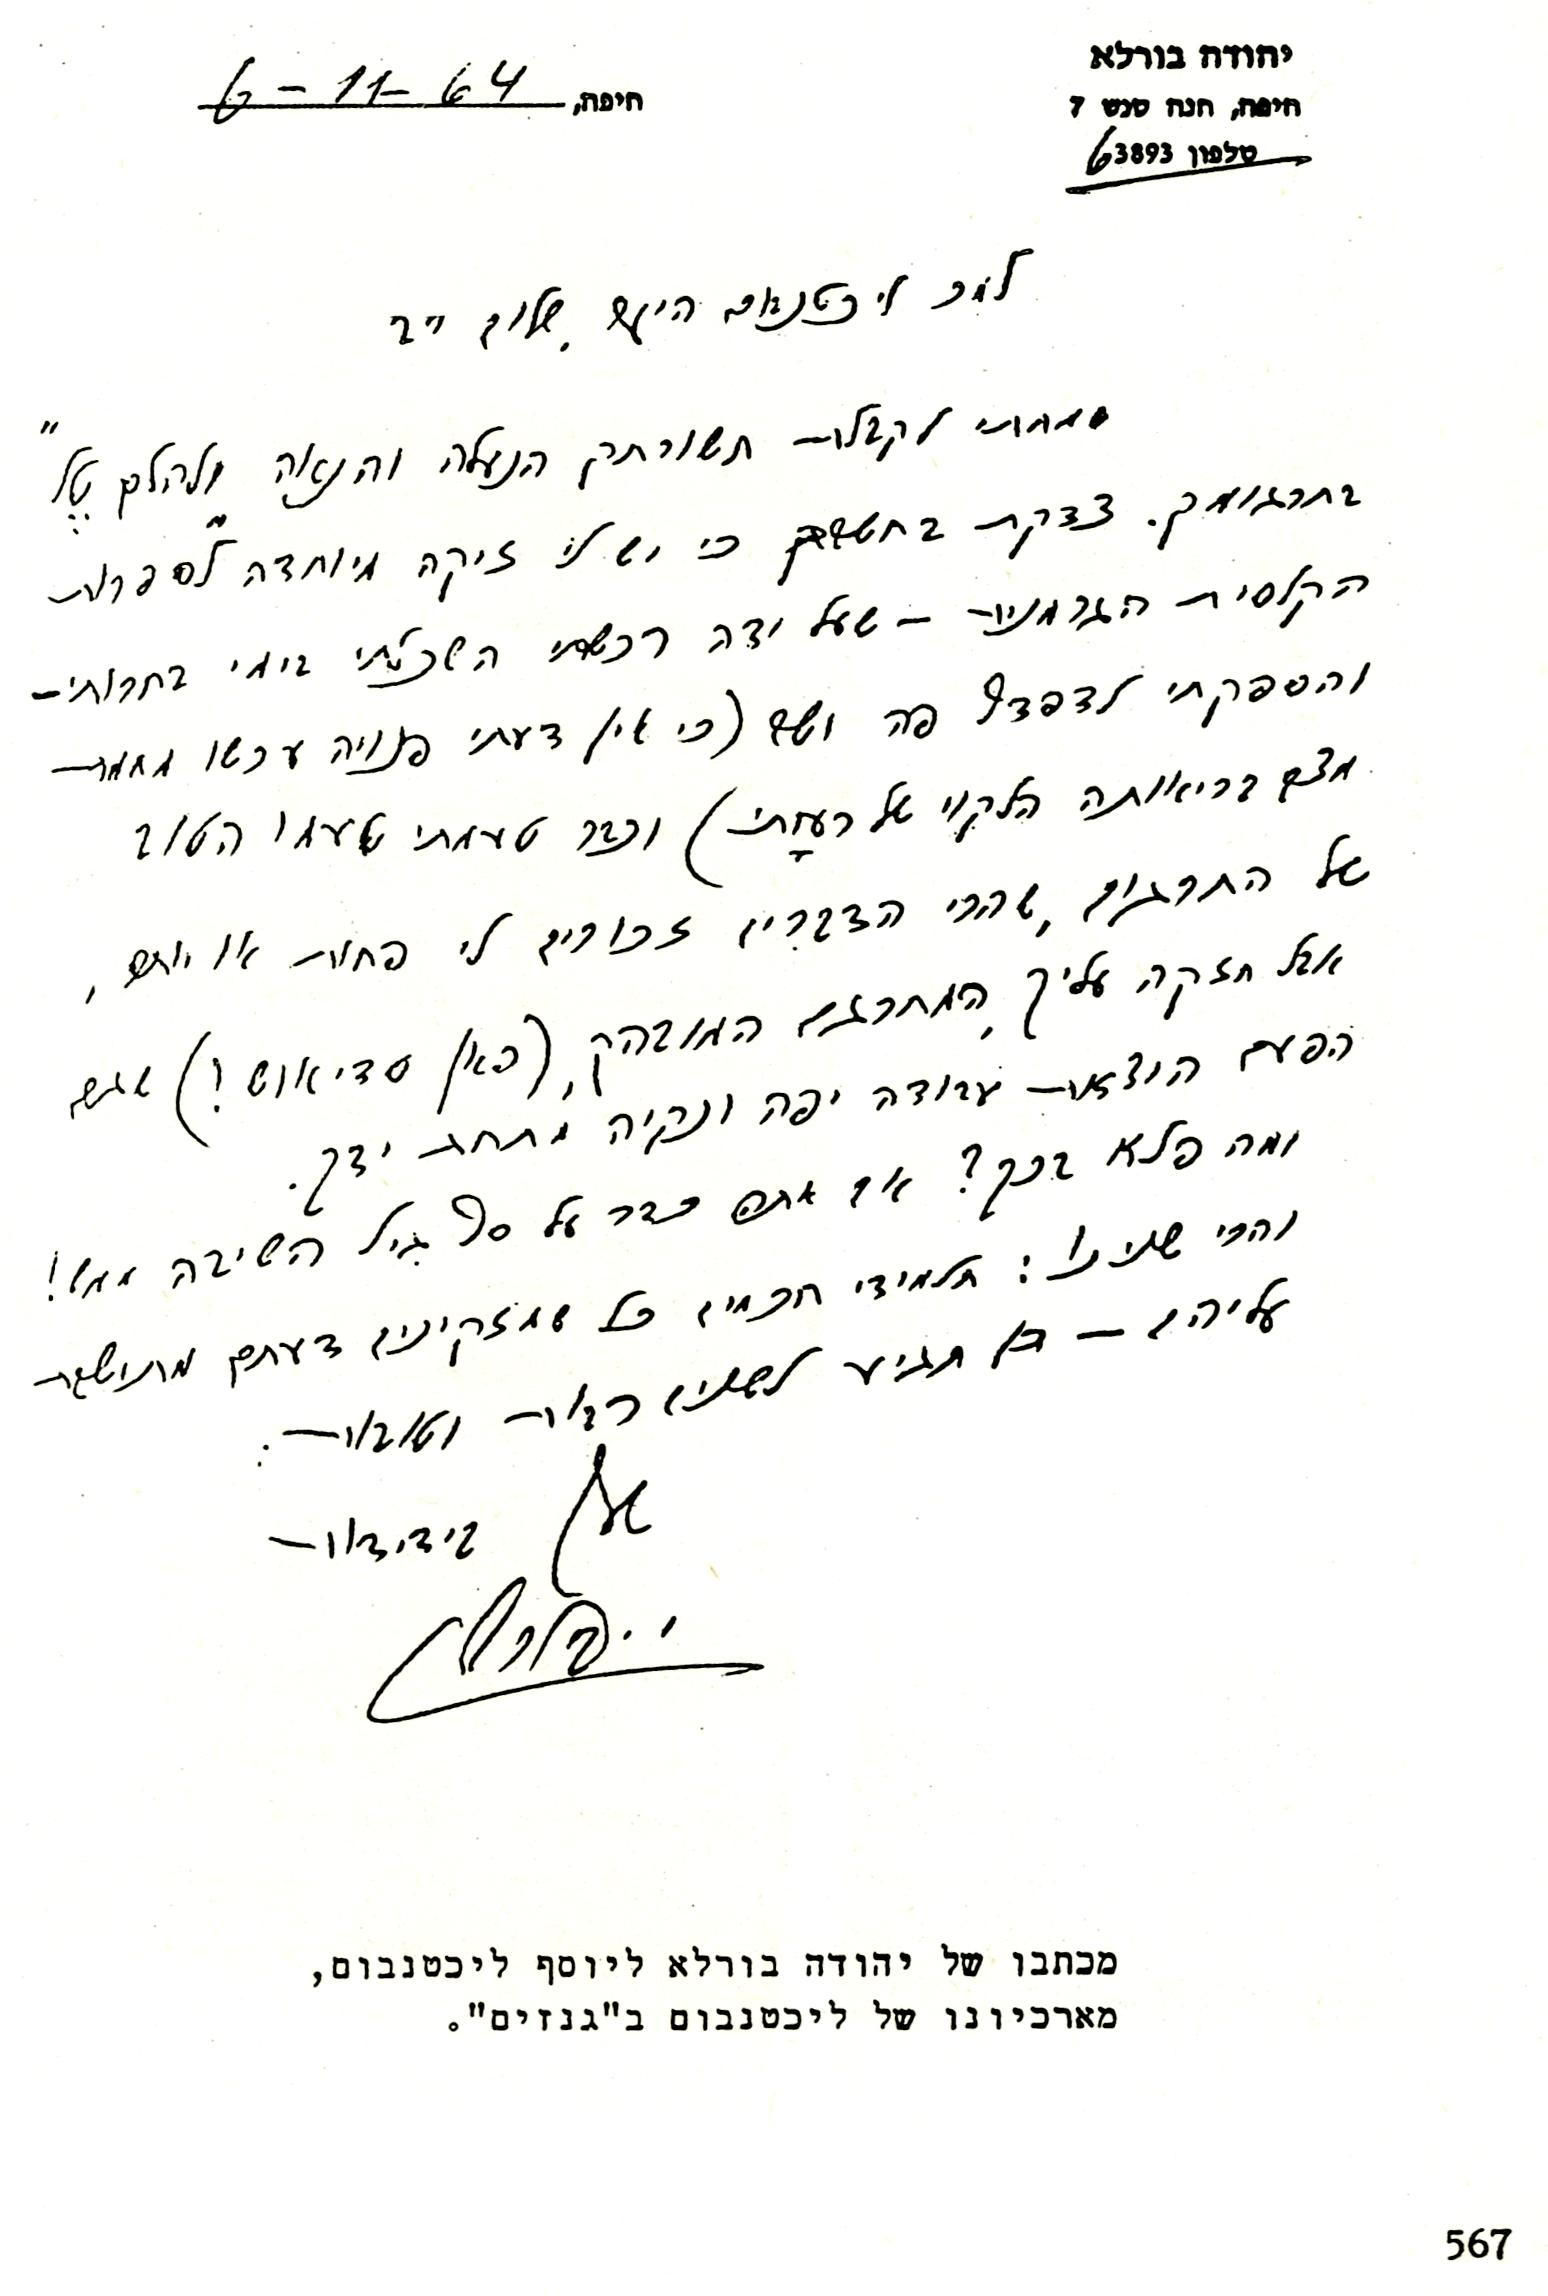 יהודה בורלא
חיפה, חנה סנש 7
טלפון 63893
חיפה, 6-11-64
ליכטנבום היקר, שלום רב
שמחתי לקבל תשורתך הנעלה והנאה "וילהלם טֶל"
בתרגומך. צדקת כי יש לי זיקה מיוחדת לספרות
הקלסית הגרמנית – שעל ידה רכשתי השכלתי בימי בחרותי –
והספקתי לדפדף פה ושם (כי אין דעתי פנויה עכשו מחמת
מצב בריאותה הלקוי של רעיתי) וכבר טעמתי טעמו הטוב
של התרגום, שהרי הדברים זכורים לי פחות או יותר,
אבל חזקה עליך, המתרגם המובהק, שגם
הפעם הוצאת עבודה יפה ונקיה מתחת ידך.
ומה פלא בכך? אתם כבר על סף גיל השיבה ממש!
והרי שנינו: תלמידי חכמים כל שמזקינים דעתם מתוישבת
עליהם – תגיע לשנים רבות וטובות.
שלך בידידות
י. בורלא
מכתבו של יהודה בורלא ליוסף ליכטנבום,
מארכיונו של ליכטנבום ב"גנזים".
567